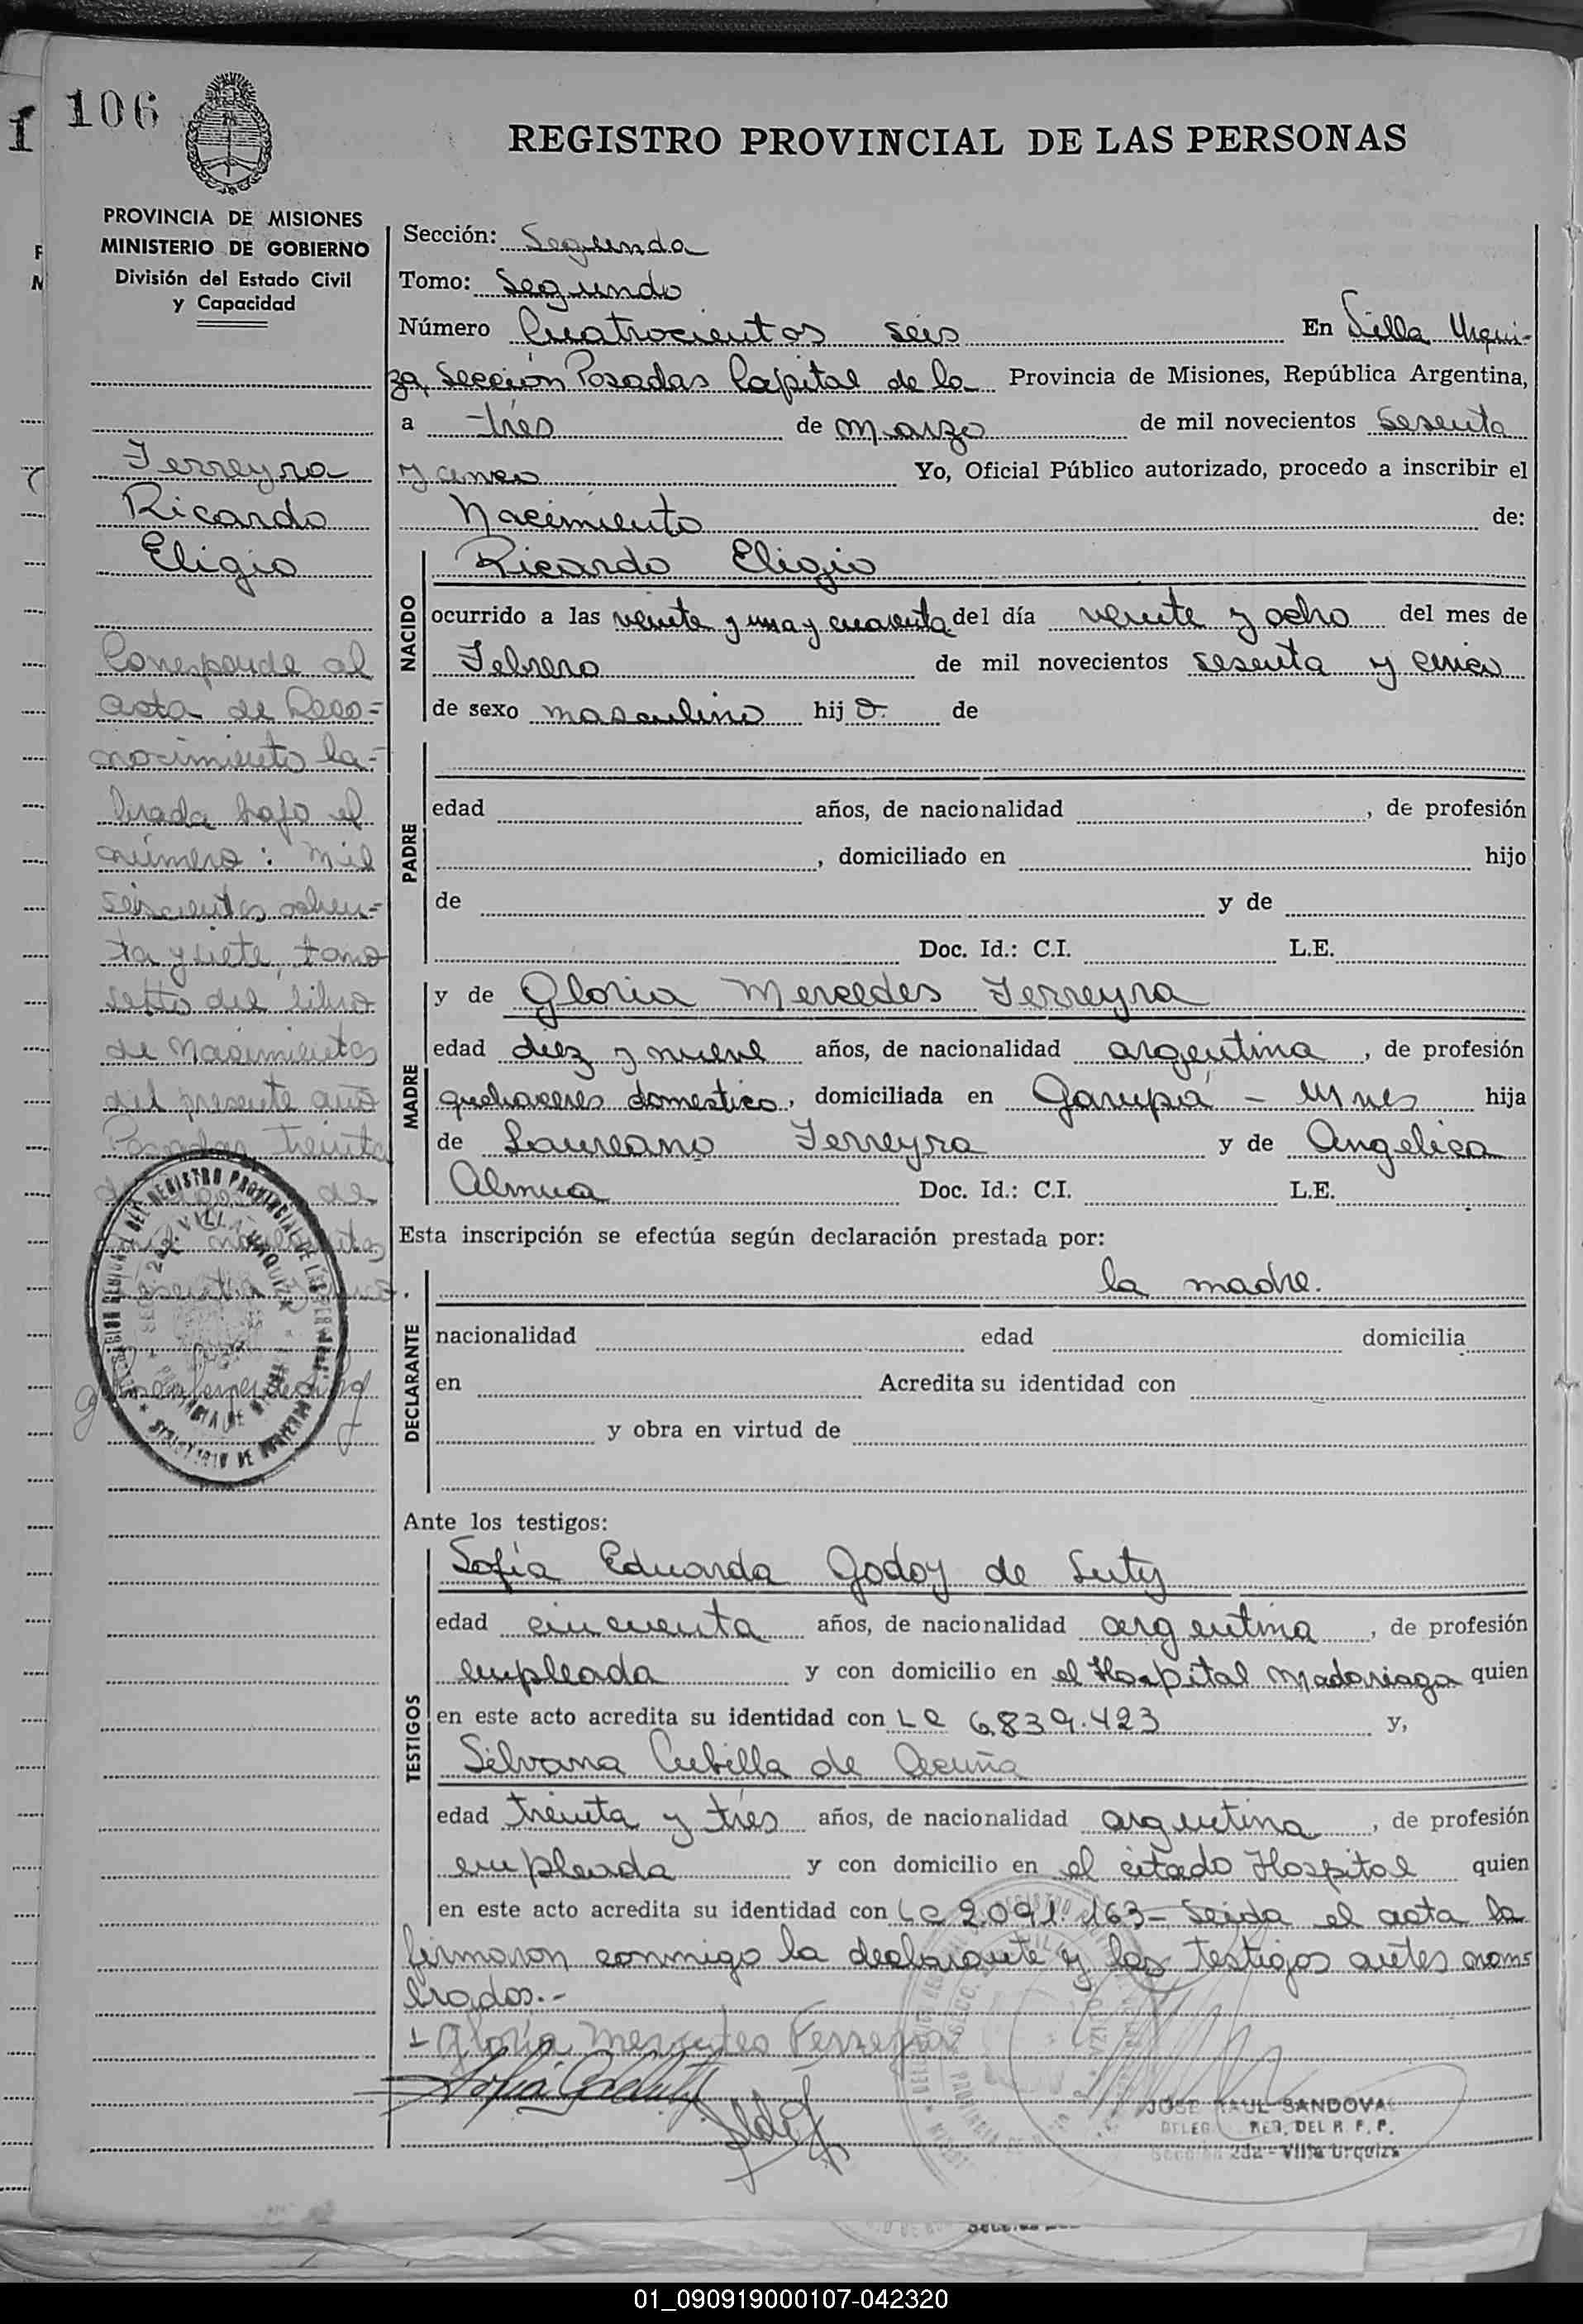 106
REGISTRO PROVINCIAL DE LAS PERSONAS
PROVINCIA DE MISIONES
MINISTERIO DE GOBIERNO
División del Estado Civil
y Capacidad
Ferreyra
Ricardo
Eligio
Corresponde al
acta de Reco=
nocimiento la=
brada bajo el
número: mil
seiscientos ochen=
ta y siete, tomo
sexto del libro
de Nacimientos
del presente año
Posadas treinta
de
Sección: Segunda
Tomo: Segundo
Número Cuatrocientos seis En Villa Urqui-
za, Sección Posadas Capital de la Provincia de Misiones, República Argentina,
a tres de marzo de mil novecientos sesenta
y cinco Yo, Oficial Público autorizado, procedo a inscribir el
Nacimiento de:
NACIDO
Ricardo Eligio
ocurrido a las veinte y una y cuarenta del día veinte y ocho del mes de
Febrero de mil novecientos sesenta y cinco
de sexo masculino hijo de
PADRE
edad años, de nacionalidad , de profesión
, domiciliado en hijo
de y de
Doc. Id.: C.I. L.E.
MADRE
y de Gloria Mercedes Ferreyra
edad diez y nueve años, de nacionalidad argentina, de profesión
quehaceres domestico, domiciliada en Garupá - Mnes hija
de Laureano Ferreyra y de Angelica
Almua Doc. Id.: C.I. L.E.
Esta inscripción se efectúa según declaración prestada por:
DECLARANTE
la madre.
nacionalidad edad domicilia
en Acredita su identidad con
y obra en virtud de
Ante los testigos:
TESTIGOS
Sofía Eduarda Godoy de Luty
edad cincuenta años, de nacionalidad argentina, de profesión
empleada y con domicilio en el Hospital Madariaga quien
en este acto acredita su identidad con LC 6.839.423 y,
Silvana Cubilla de Acuña
edad treinta y tres años, de nacionalidad argentina, de profesión
empleada y con domicilio en el citado Hospital quien
en este acto acredita su identidad con LC 2.091.163- Leida el acta la
firmaron conmigo la declarante y las testigos antes nom=
brados.-
Gloria Mercedes Ferreyra
JOSE RAUL SANDOVAL
DELEG. REG. DEL R. P. P.
Sección 2da - Villa Urquiza
01_090919000107-042320